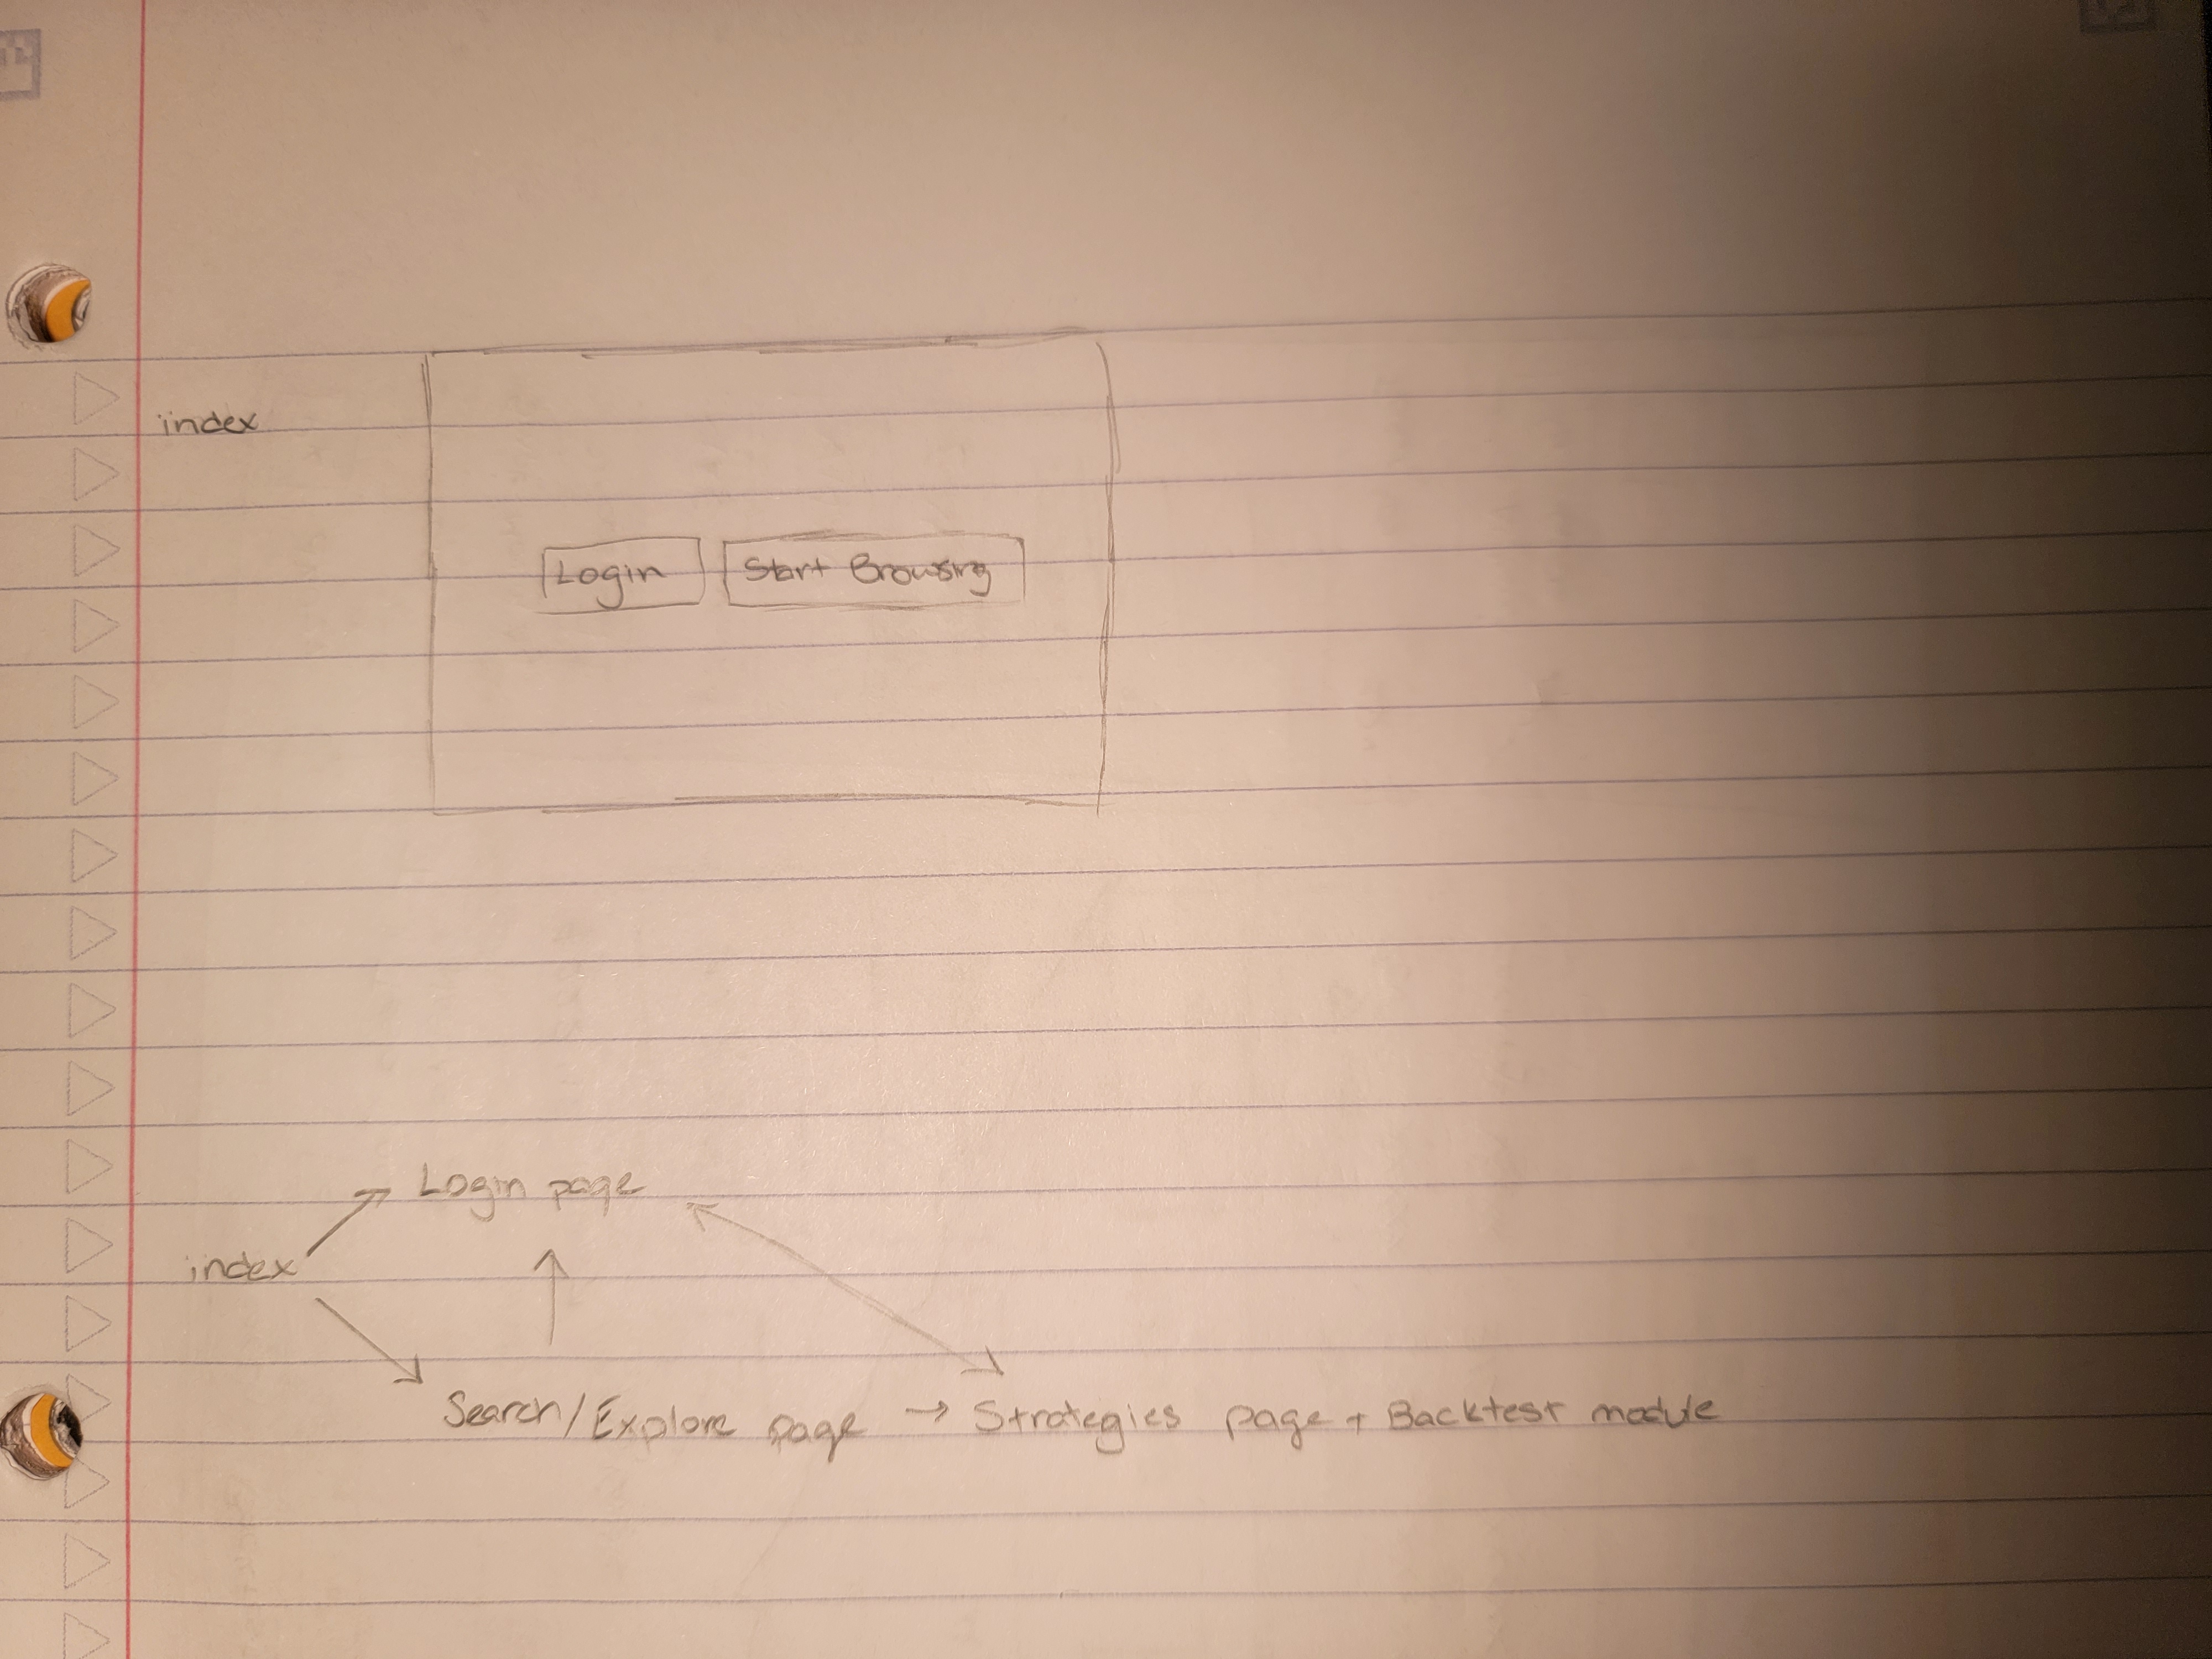 index
Login Start Browsing
Login page
index
Search/Explore page → Strategies page + Backtest module